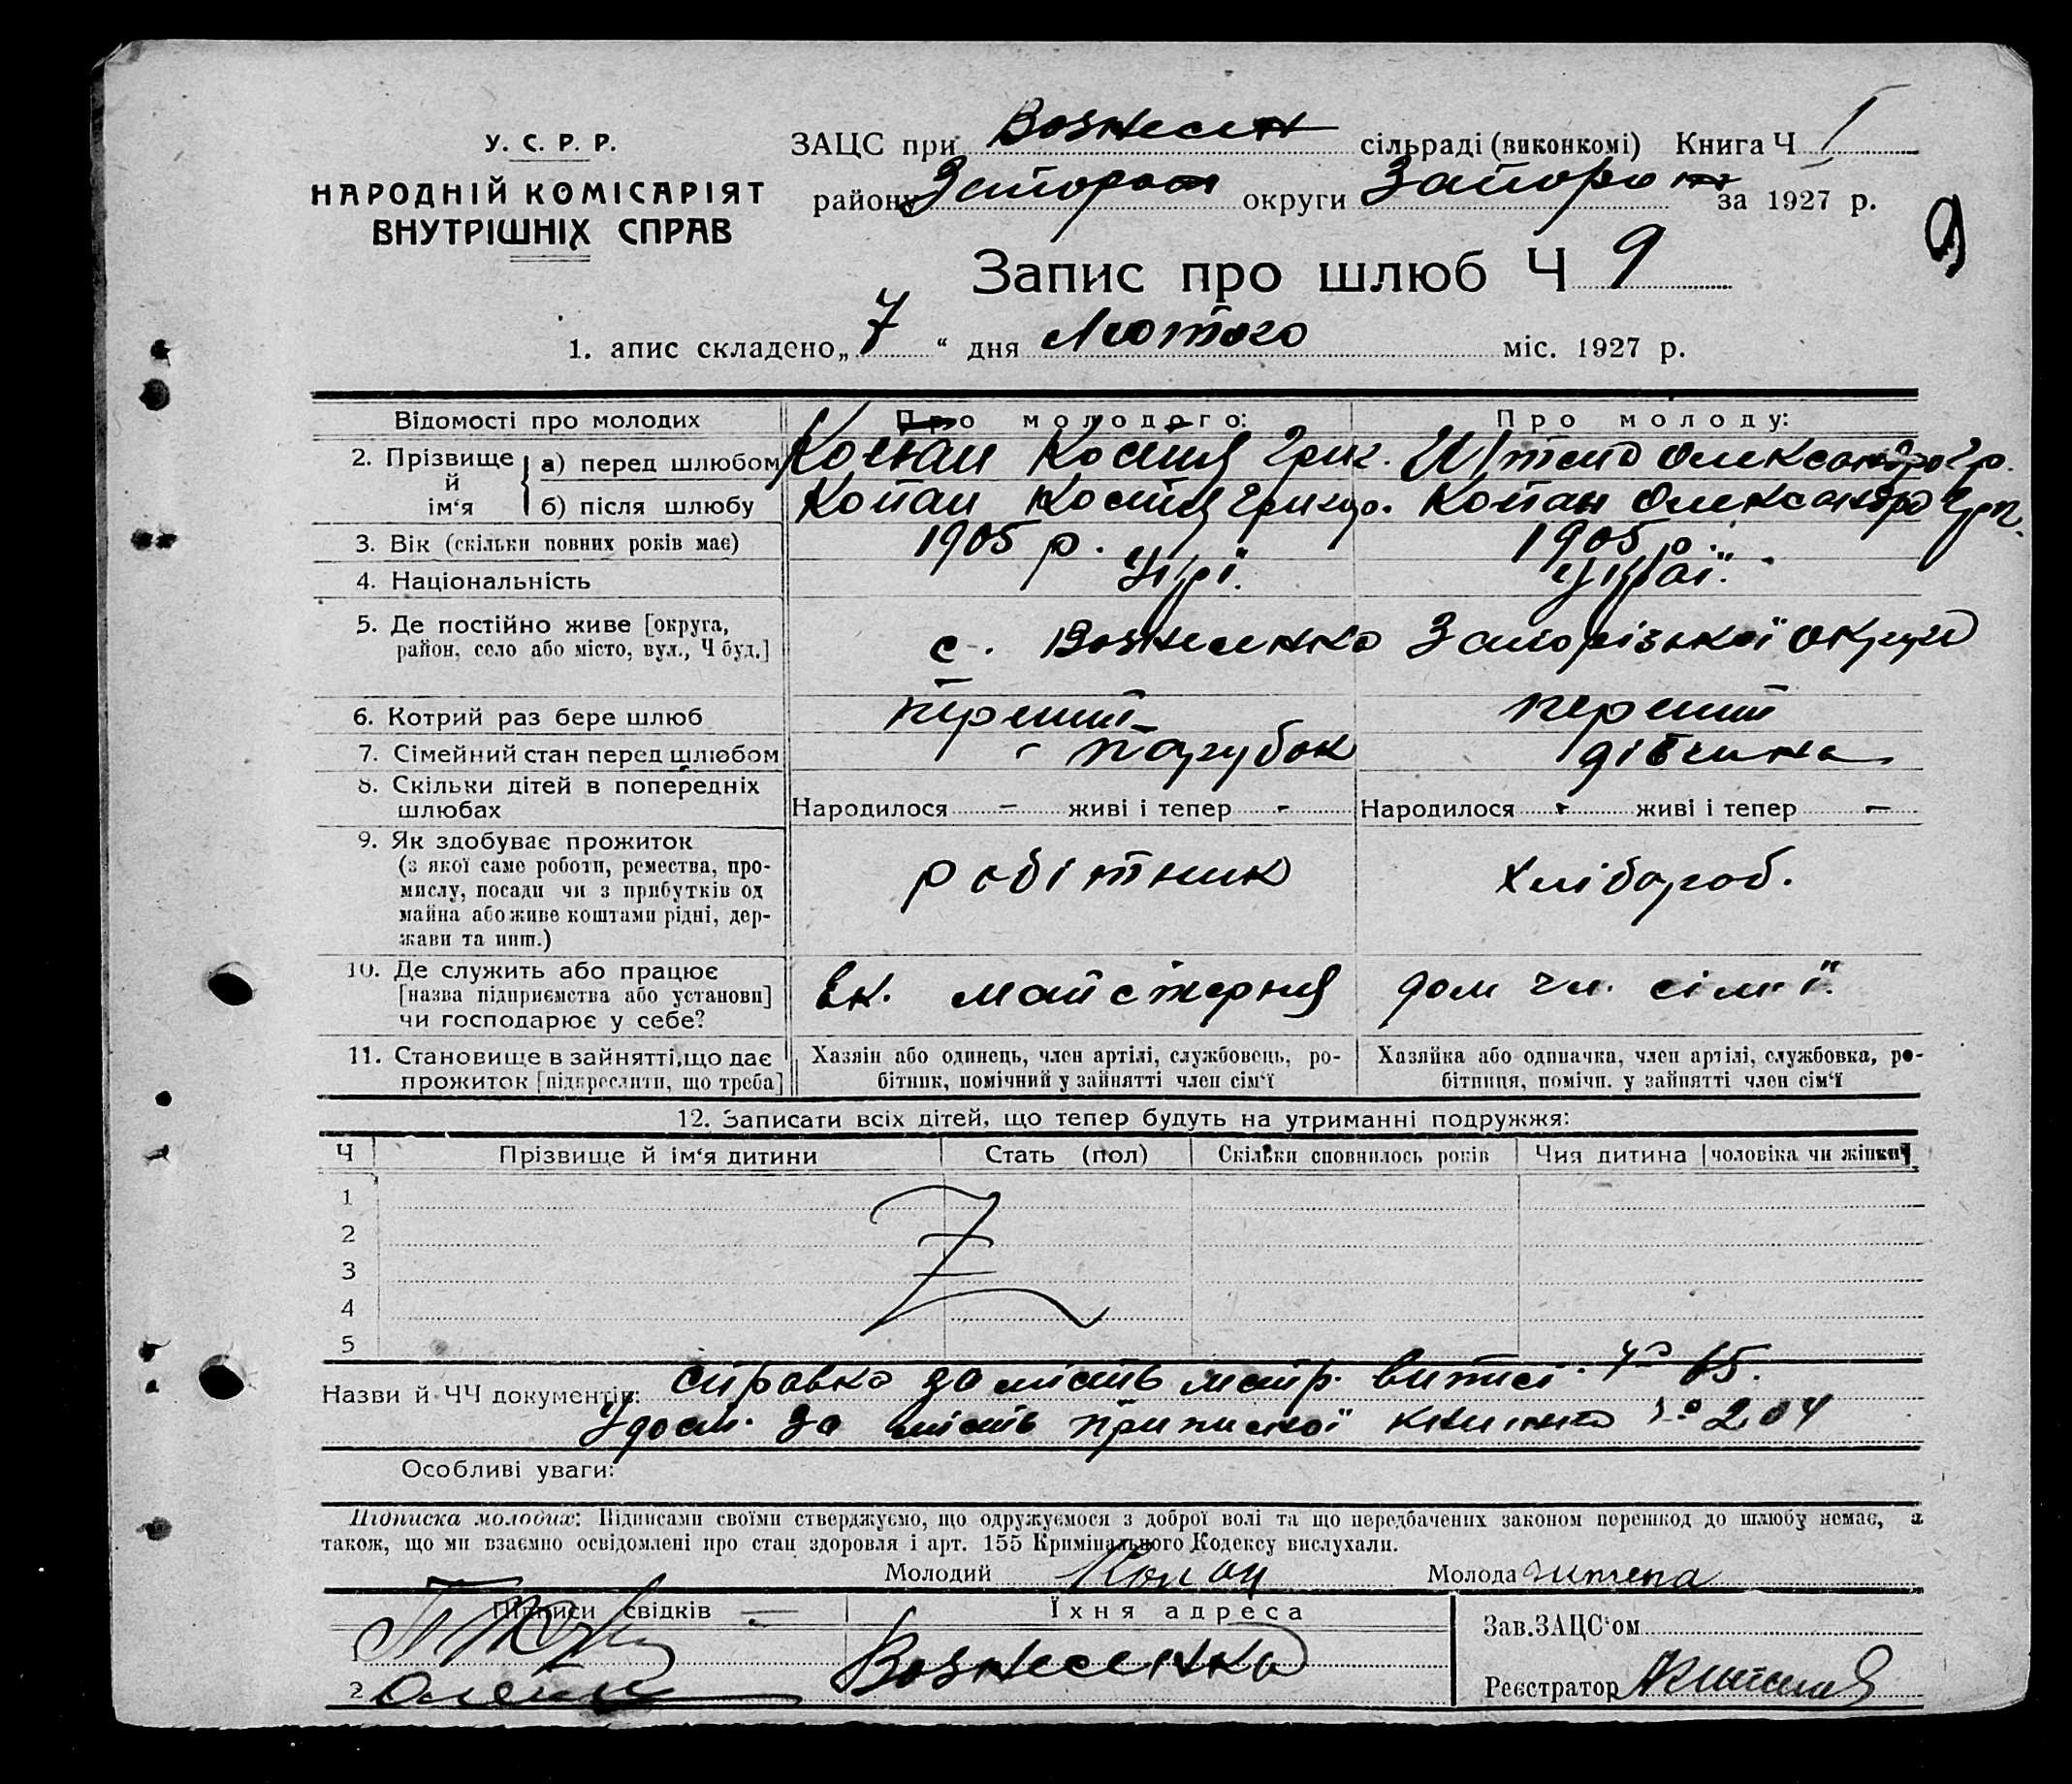 У. С. Р. Р.
НАРОДНІЙ КОМІСАРІЯТ
ВНУТРІШНІХ СПРАВ
ЗАЦС при Вознесен сільраді (виконкомі) Книга Ч I
району Запорож округи Запорож за 1927 р.
9
Запис про шлюб Ч 9
1. апис складено „ 7 “ дня Лютого міс. 1927 р.
Відомості про молодих
Про молодого:
Про молоду:
2. Прізвище й ім‘я
а) перед шлюбом
Копан Костя Григ.
Олександра Гр.
б) після шлюбу
Копан Костя Григор.
Копан Олександра Гр.
3. Вік (скільки повних років має)
1905 р.
1905 р.
4. Національність
Укрї.
Украї.
5. Де постійно живе [округа,
район, село або місто, вул., Ч буд.]
с. Вознесенка Запорізької округи
6. Котрий раз бере шлюб
перший
перший
7. Сімейний стан перед шлюбом
парубок
дівчина
8. Скільки дітей в попередніх
шлюбах
Народилося – живі і тепер -
Народилося - живі і тепер –
9. Як здобуває прожиток
(з якої саме роботи, ремества, про-
мислу, посади чи з прибутків од
майна або живе коштами рідні, дер-
жави та инш.)
робітник
Хлібороб.
10. Де служить або працює
[назва підприємства або установи]
чи господарює у себе?
Ек. майстерня
дом чл. сім'ї.
11. Становище в зайнятті, що дає
прожиток [підкреслити, що треба]
Хазяін або одинець, член артілі, службовець, ро-
бітник, помічний у зайнятті член сім‘ї
Хазяйка або одиначка, член артілі, службовка, ро-
бітниця, помічн. у зайнятті член сім‘ї
12. Записати всіх дітей, що тепер будуть на утриманні подружжя:
Ч
Прізвище й ім‘я дитини
Стать (пол)
Скільки сповнилось років
Чия дитина [чоловіка чи жінки]
1
2
3
4
5
Назви й ЧЧ документів: справка замість метр. витисі. № 65.
Удост. за мість приписної книжки № 204
Особливі уваги:
Підписка молодих: Підписами своїми стверджуємо, що одружуємося з доброї волі та що передбачених законом перешкод до шлюбу немає, а
також, що ми взаємно освідомлені про стан здоровля і арт. 155 Кримінального Кодексу вислухали.
Молодий Копан
Молода
Підписи свідків
Їхня адреса
1
2
Вознесенка
Зав. ЗАЦС‘ом
Реєстратор